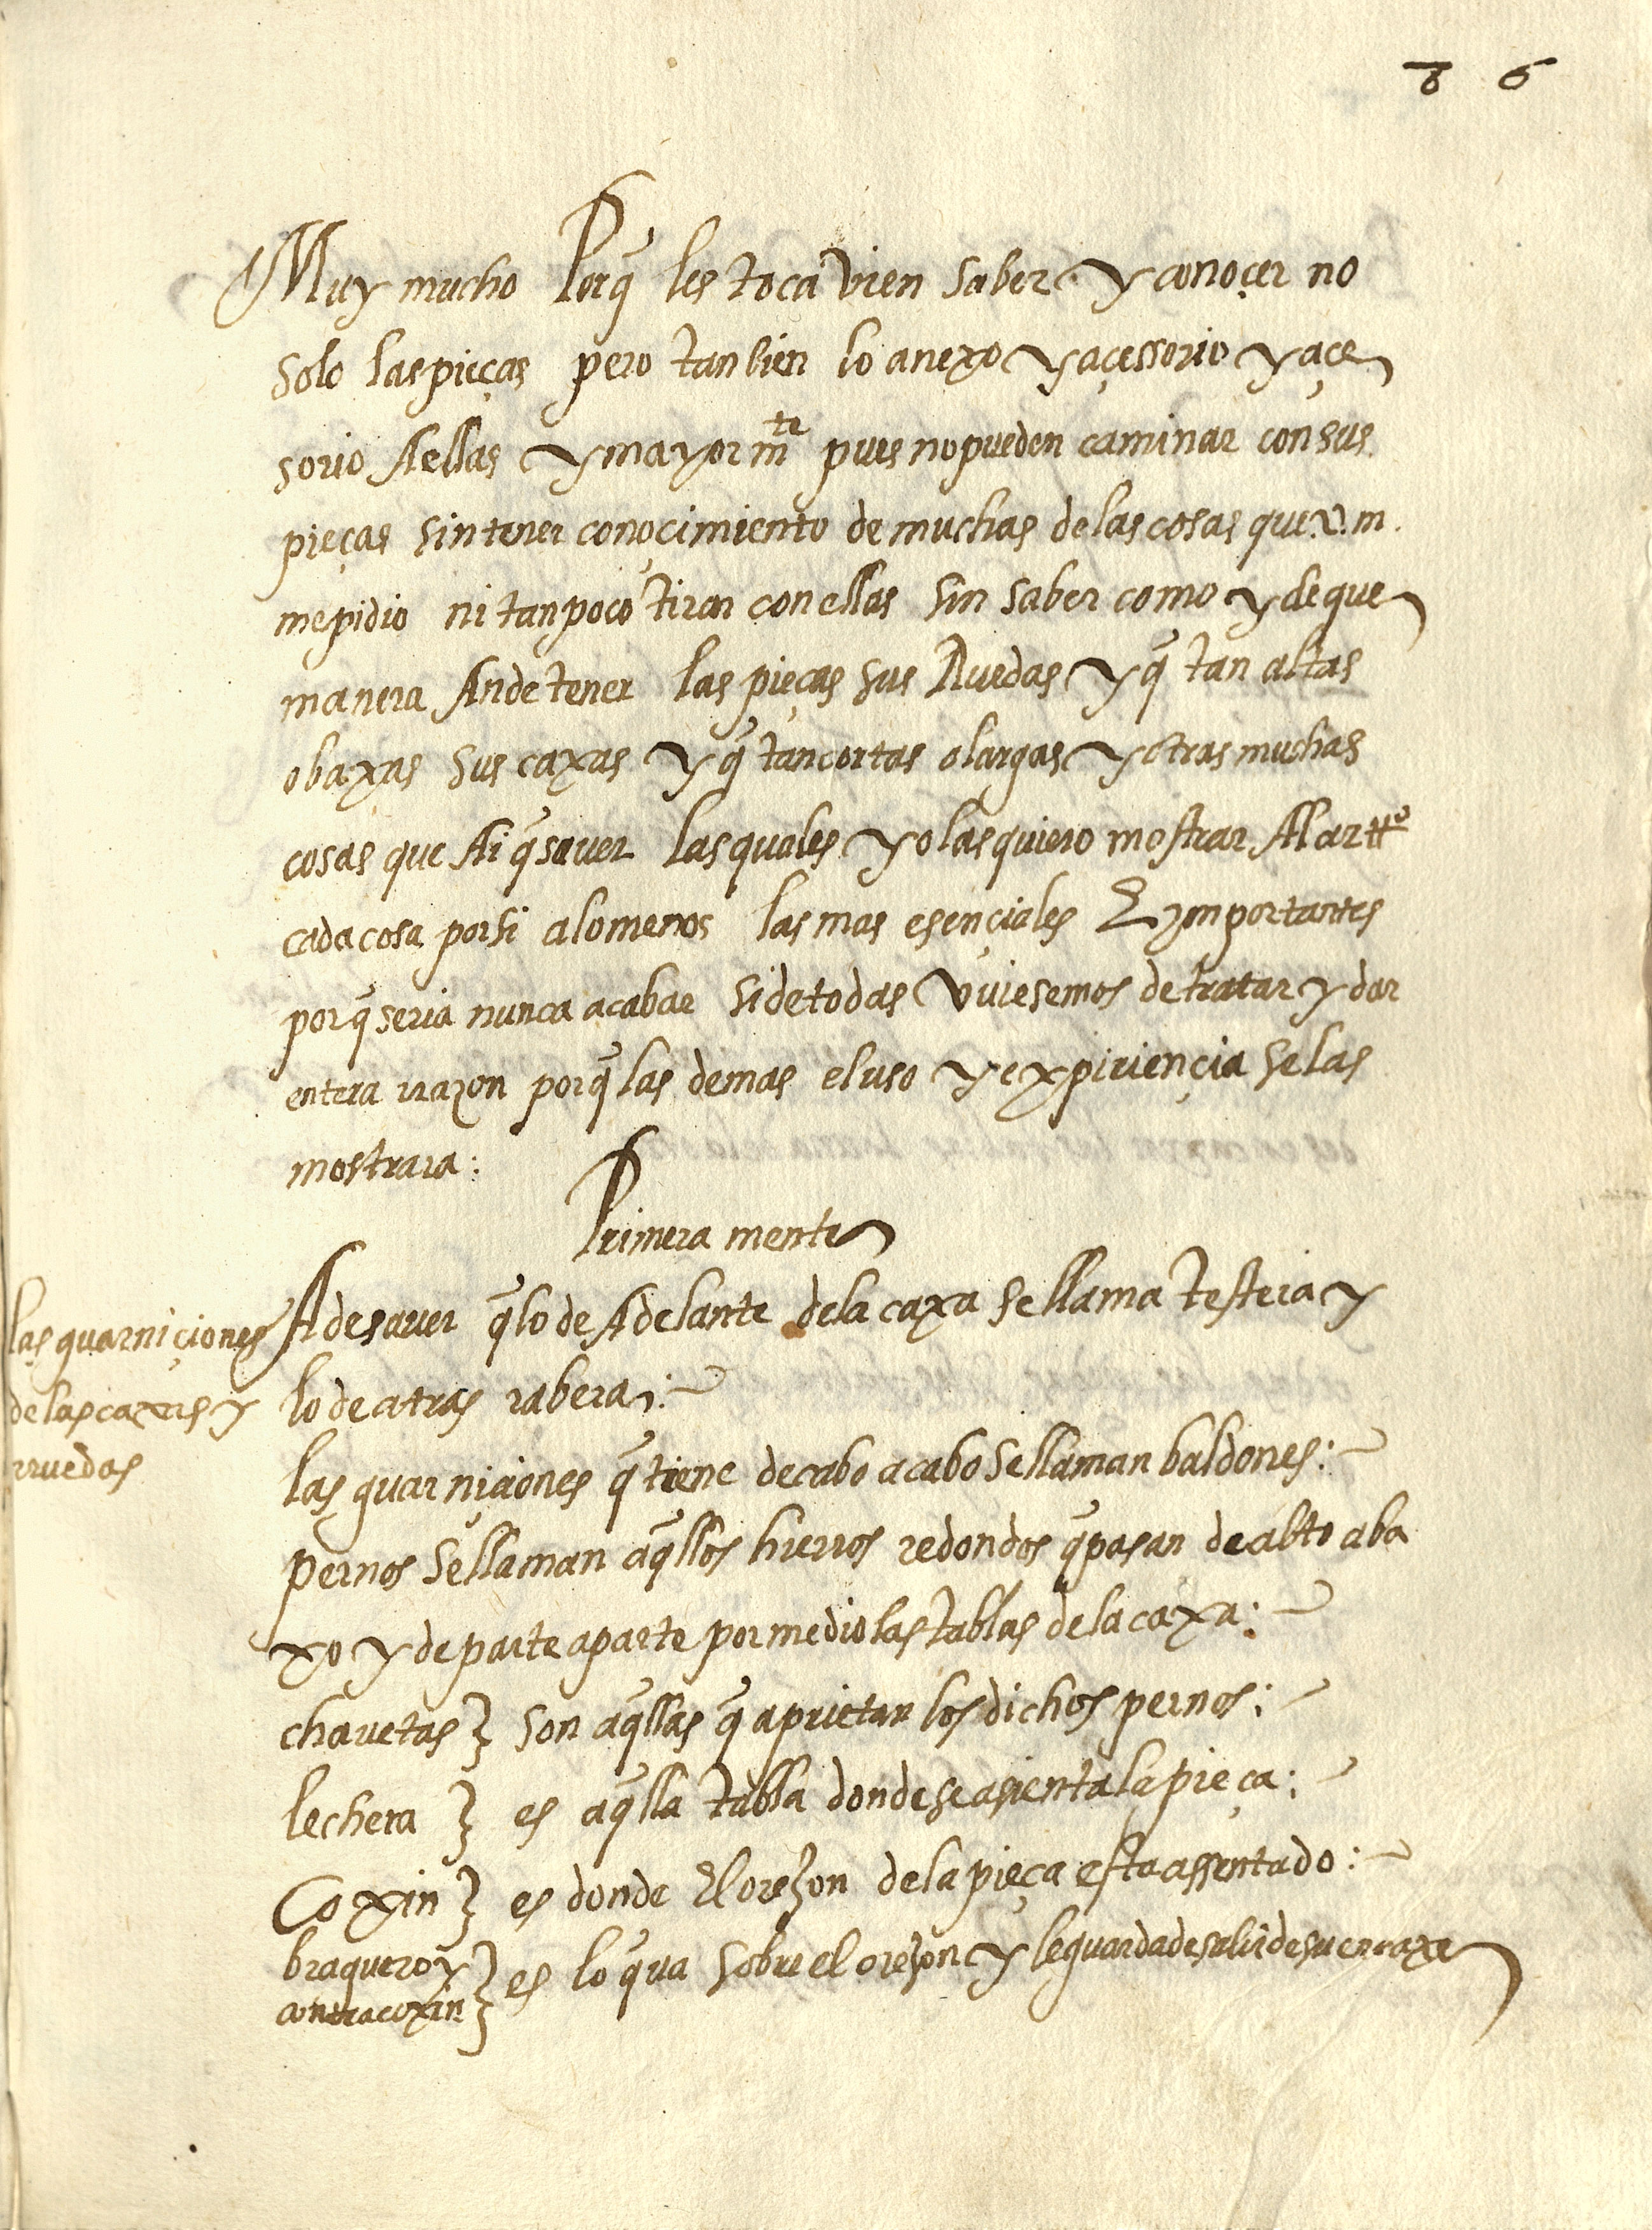 86
Muy mucho Porq̃ les toca vien saber y conoçer no
solo las pieças pero tanbien lo anexo y açessorio y açe
sorio Aellas y mayor m̃te pues no pueden caminar con sus
pieças sin tener conoçimiento de muchas de las cosas que v.m.
me pidio ni tanpoco tirar con ellas sin saber como y de que
manera An de tener las pieças sus Ruedas y q̃ tan altas
o baxas sus caxas y q̃ tan cortas o largas y otras muchas
cosas que Ai q̃ saver las quales yo las quiero mostrar Al artro
cada cosa por si alomenos las mas esençiales E ymportantes
porq̃ seria nunca acabar si de todas vuiesemos de tratar y dar
entera rrazon porq̃ las demas el uso y expiriençia se las
mostrara:
Primera mente
A de saver q̃ lo de Adelante de la caxa se llama testera y
las guarniçiones
de las caxas y
rruedas
lo de atras rabera:
las guarniçiones q̃ tiene de cabo a cabo se llaman baldones:
pernos se llaman aq̃llos hierros redondos q̃ pasan de alto aba
xo y de parte a parte por medio las tablas de la caxa:
chavetas} son aq̃llas q̃ aprietan los dichos pernos:
lechera } es aq̃lla tabla donde se asienta la pieça:
Coxin } es donde El orejon de la pieça esta assentado:
braquero y
contracoxin } es lo q̃ va sobre el orejon y le guarda de salir de su encaxe